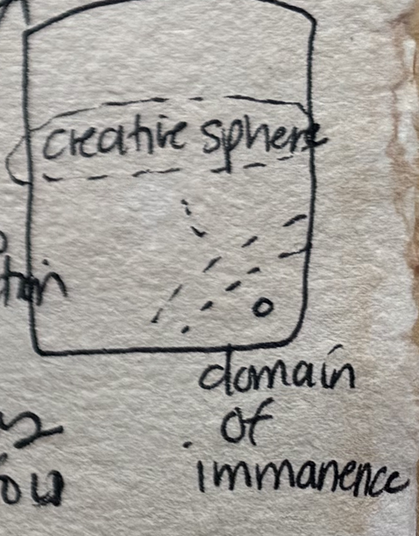 creative sphere
domain
of
immanence